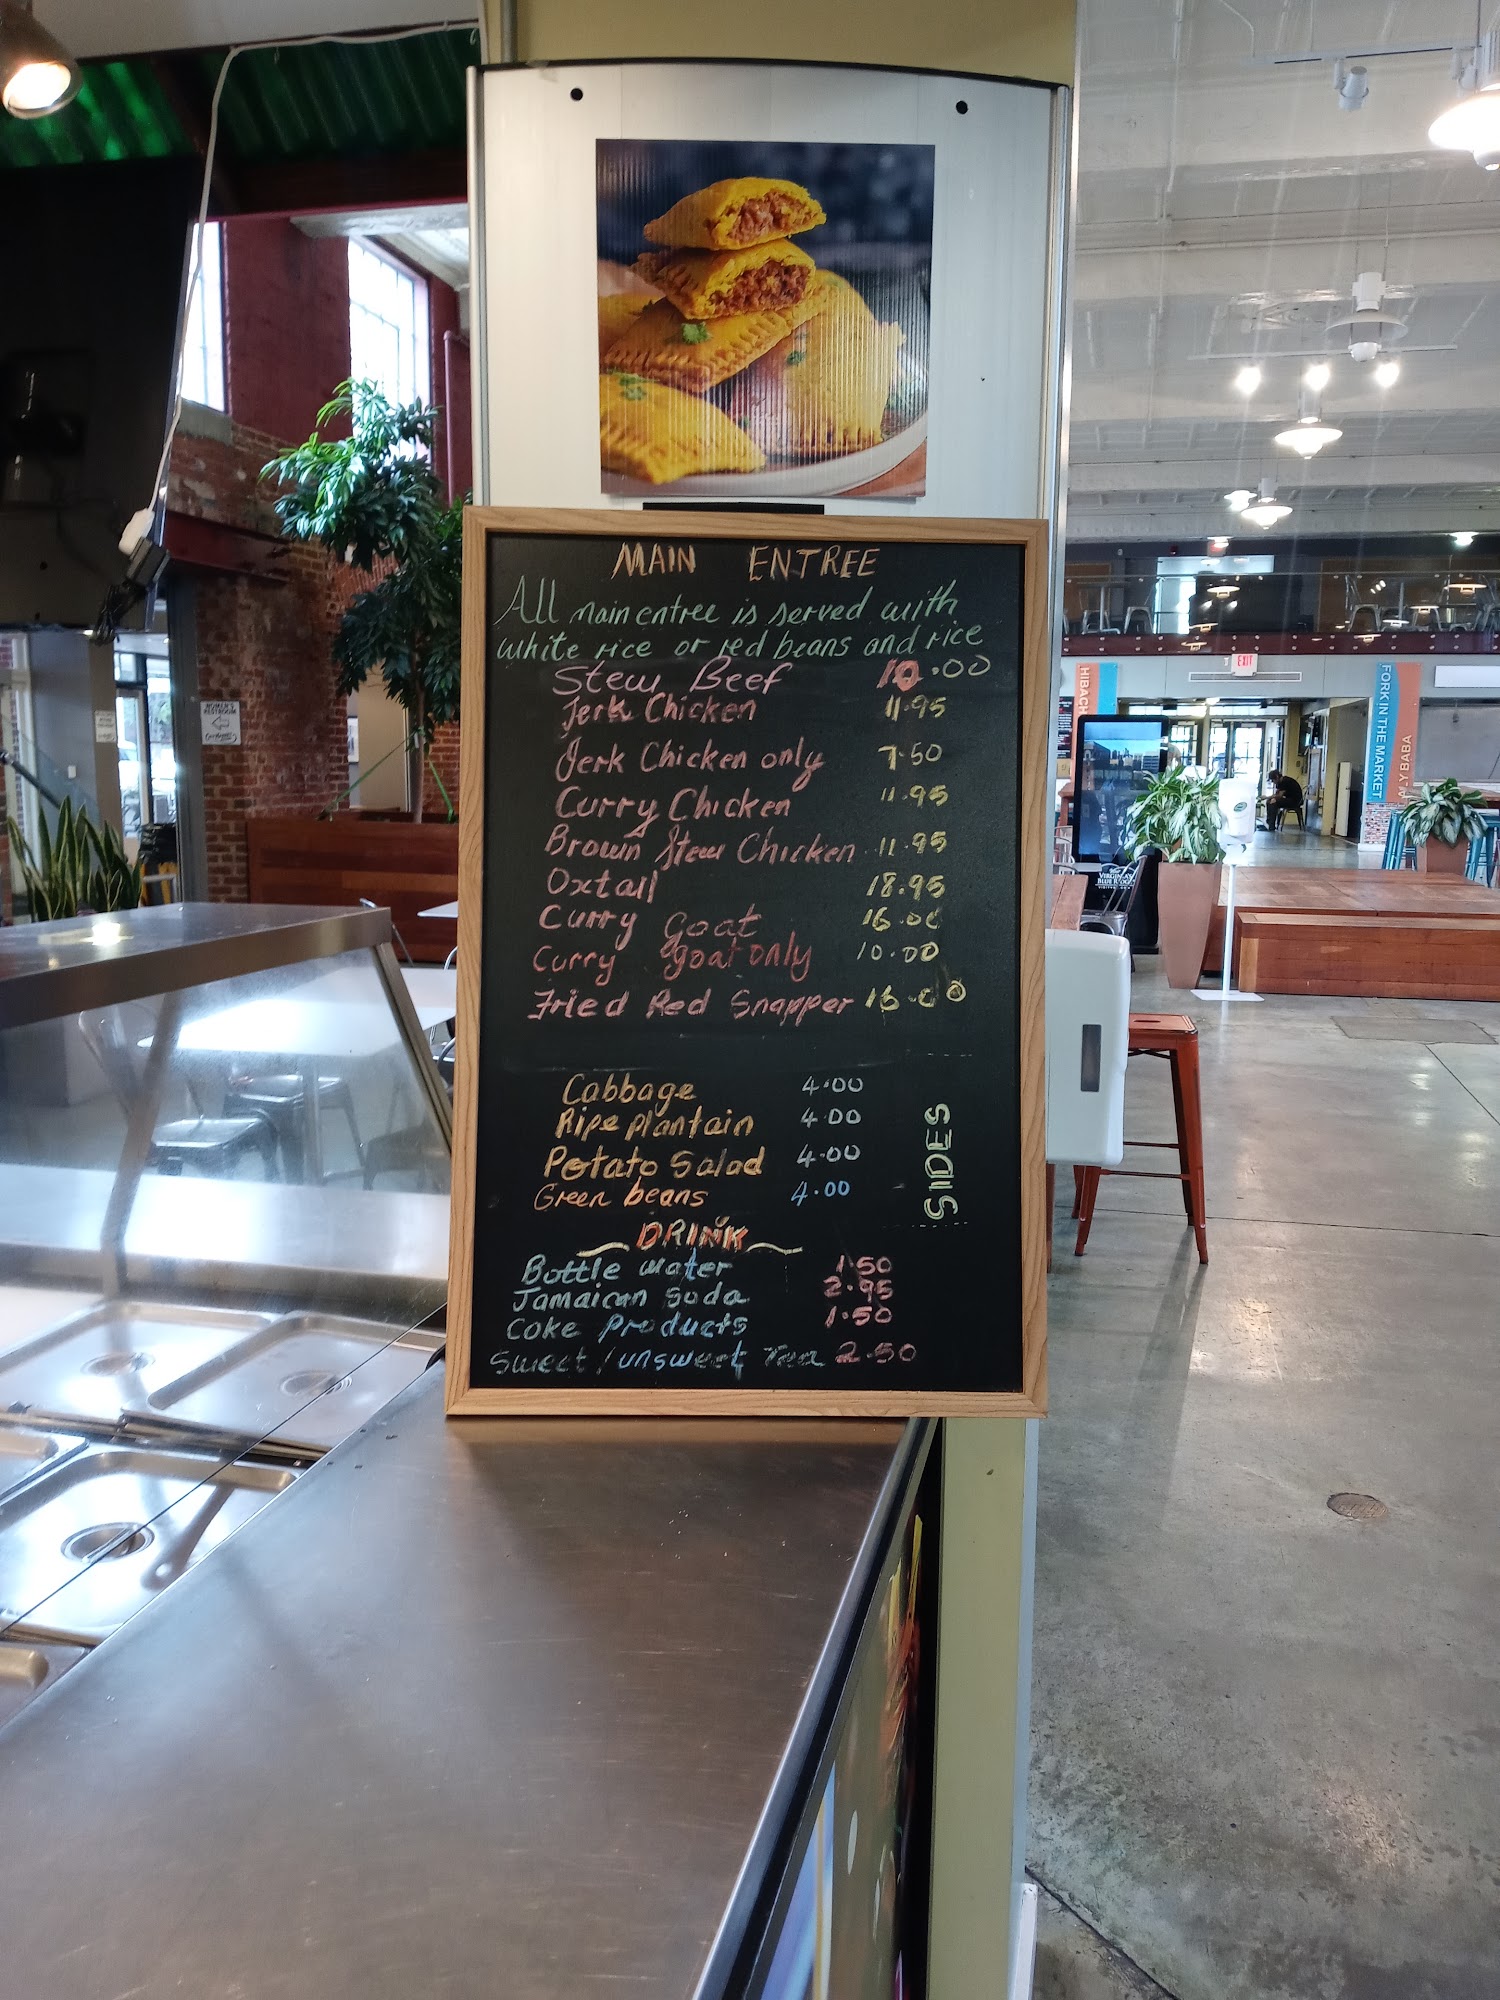 MAIN ENTREE
All main entree is served with
white rice or red beans and rice
Stew Beef 10.00
Jerk Chicken 11.95
Jerk Chicken only 7.50
Curry Chicken 11.95
Brown Stew Chicken 11.95
Oxtail 18.95
Curry goat 16.00
Curry goat only 10.00
Fried Red Snapper 16.00
Cabbage 4.00
Ripe plantain 4.00
Potato Salad 4.00
Green beans 4.00
SIDES
DRINK
Bottle water 1.50
Jamaican Soda 2.95
Coke Products 1.50
Sweet/unsweet Tea 2.50
WOMEN'S
RESTROOM
EXIT
HIBACH
FORK IN THE MARKET
ALY BABA
VIRGINIA'S
BLUE RIDGE